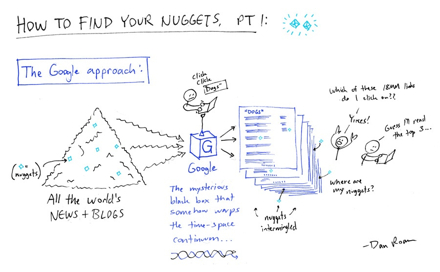 HOW TO FIND YOUR NUGGETS, PT 1:
The Google approach:
click
click
"Dogs"
(◇ = nuggets)
All the world's
NEWS + BLOGS
G
Google
The mysterious
black box that
somehow warps
the time-space
continuum...
"DOGS"
nuggets
intermingled
Which of these 18MM links
do I click on??
Yikes!
Guess I'll read
the top 3...
Where are
my nuggets?
-Dan Roam